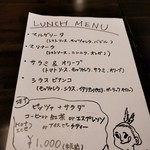 LUNCH MENU
・マルゲリータ
(トマトソース、モッツァレラ、バジル)
・マリナーラ
(トマトソース、ニンニク、オレガノ)
・サラミ & オリーブ
(トマトソース、モッツァレラ、サラミ、オリーブ)
・シラス ビアンコ
(モッツァレラ、シラス、
ピッツァ + サラダ
コーヒー or 紅茶 or エスプレッソ
or アイスコーヒー
¥1,000 (税込)